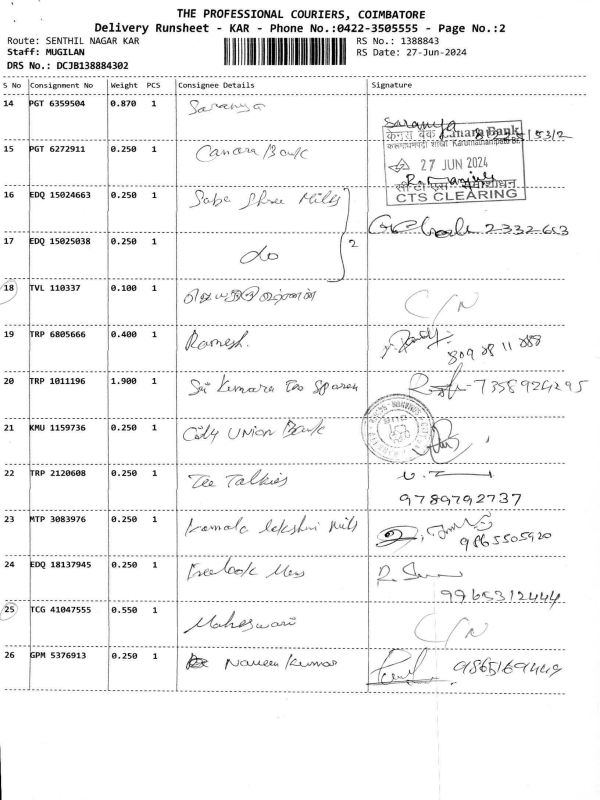 THE PROFESSIONAL COURIERS, COIMBATORE
Delivery Runsheet - KAR - Phone No.:0422-3505555 - Page No.:2
Route: SENTHIL NAGAR KAR
RS No.: 1388843
Staff: MUGILAN
RS Date: 27-Jun-2024
DRS No.: DCJB138884302
S No Consignment No Weight PCS Consignee Details Signature
14 PGT 6359504 0.870 1 Saranya
Saranya
15 PGT 6272911 0.250 1 Canara Bank
केनरा बैंक Canara Bank
27 JUN 2024
CTS CLEARING
16 EDQ 15024663 0.250 1 Sree Mills
2
2332653
17 EDQ 15025038 0.250 1 do
18 TVL 110337 0.100 1
C/N
19 TRP 6805666 0.400 1 Ramesh.
20 TRP 1011196 1.900 1 Sri Kumara Tex
7358924295
21 KMU 1159736 0.250 1 City Union Bank
22 TRP 2120608 0.250 1 Tee Talkies
9789792737
23 MTP 3083976 0.250 1 Kamala lakshmi Mills
9865505920
24 EDQ 18137945 0.250 1
9965312444
25 TCG 41047555 0.550 1 Maheswari
C/N
26 GPM 5376913 0.250 1 Naveen Kumar
9865169449